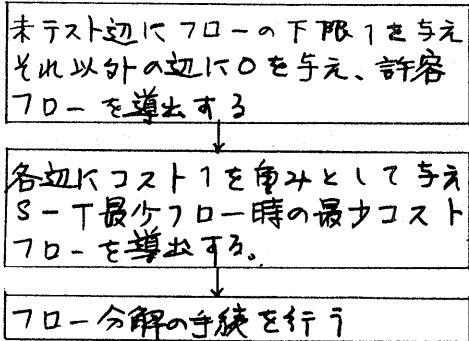 未テスト辺にフローの下限1を与え
それ以外の辺に0を与え、許容
フローを導出する
各辺にコスト1を重みとして与え
S-T最少フロー時の最少コスト
フローを導出する。
フロー分解の手続を行う